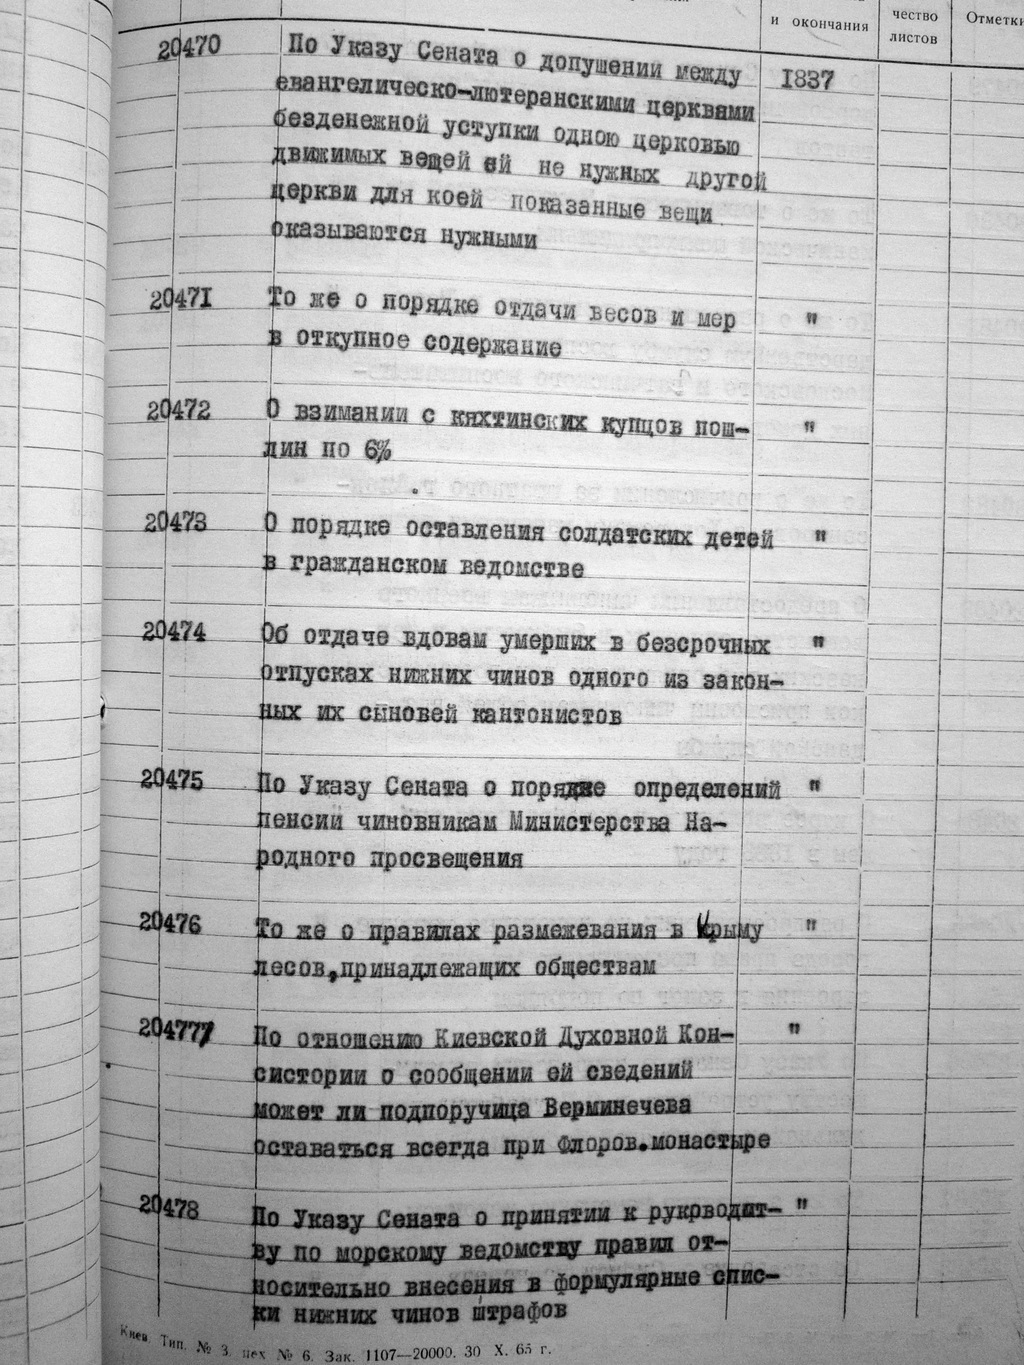 и окончания
чество
листов
Отметки
20470 По Указу Сената о допущении между 1837
евангелическо-лютеранскими церквями
безденежной уступки одною церковью
движимых вещей ей не нужных другой
церкви для коей показанные вещи
оказываются нужными
20471 То же о порядке отдачи весов и мер "
в откупное содержание
20472 О взимании с кяхтинских купцов пош- "
лин по 6%
20473 О порядке оставления солдатских детей "
в гражданском ведомстве
20474 Об отдаче вдовам умерших в безсрочных "
отпусках нижних чинов одного из закон-
ных их сыновей кантонистов
20475 По Указу Сената о порядке определений "
пенсии чиновникам Министерства На-
родного просвещения
20476 То же о правилах размежевания в Крыму "
лесов, принадлежащих обществам
20477 По отношению Киевской Духовной Кон- "
систории о сообщении ей сведений
может ли подпоручица Верминечева
оставаться всегда при Флоров.монастыре
20478 По Указу Сената о принятии к руководст- "
ву по морскому ведомству правил от-
носительно внесения в формулярные спис-
ки нижних чинов штрафов
Киев. Тип. № 3. цех № 6. Зак. 1107—20000. 30 X. 65 г.